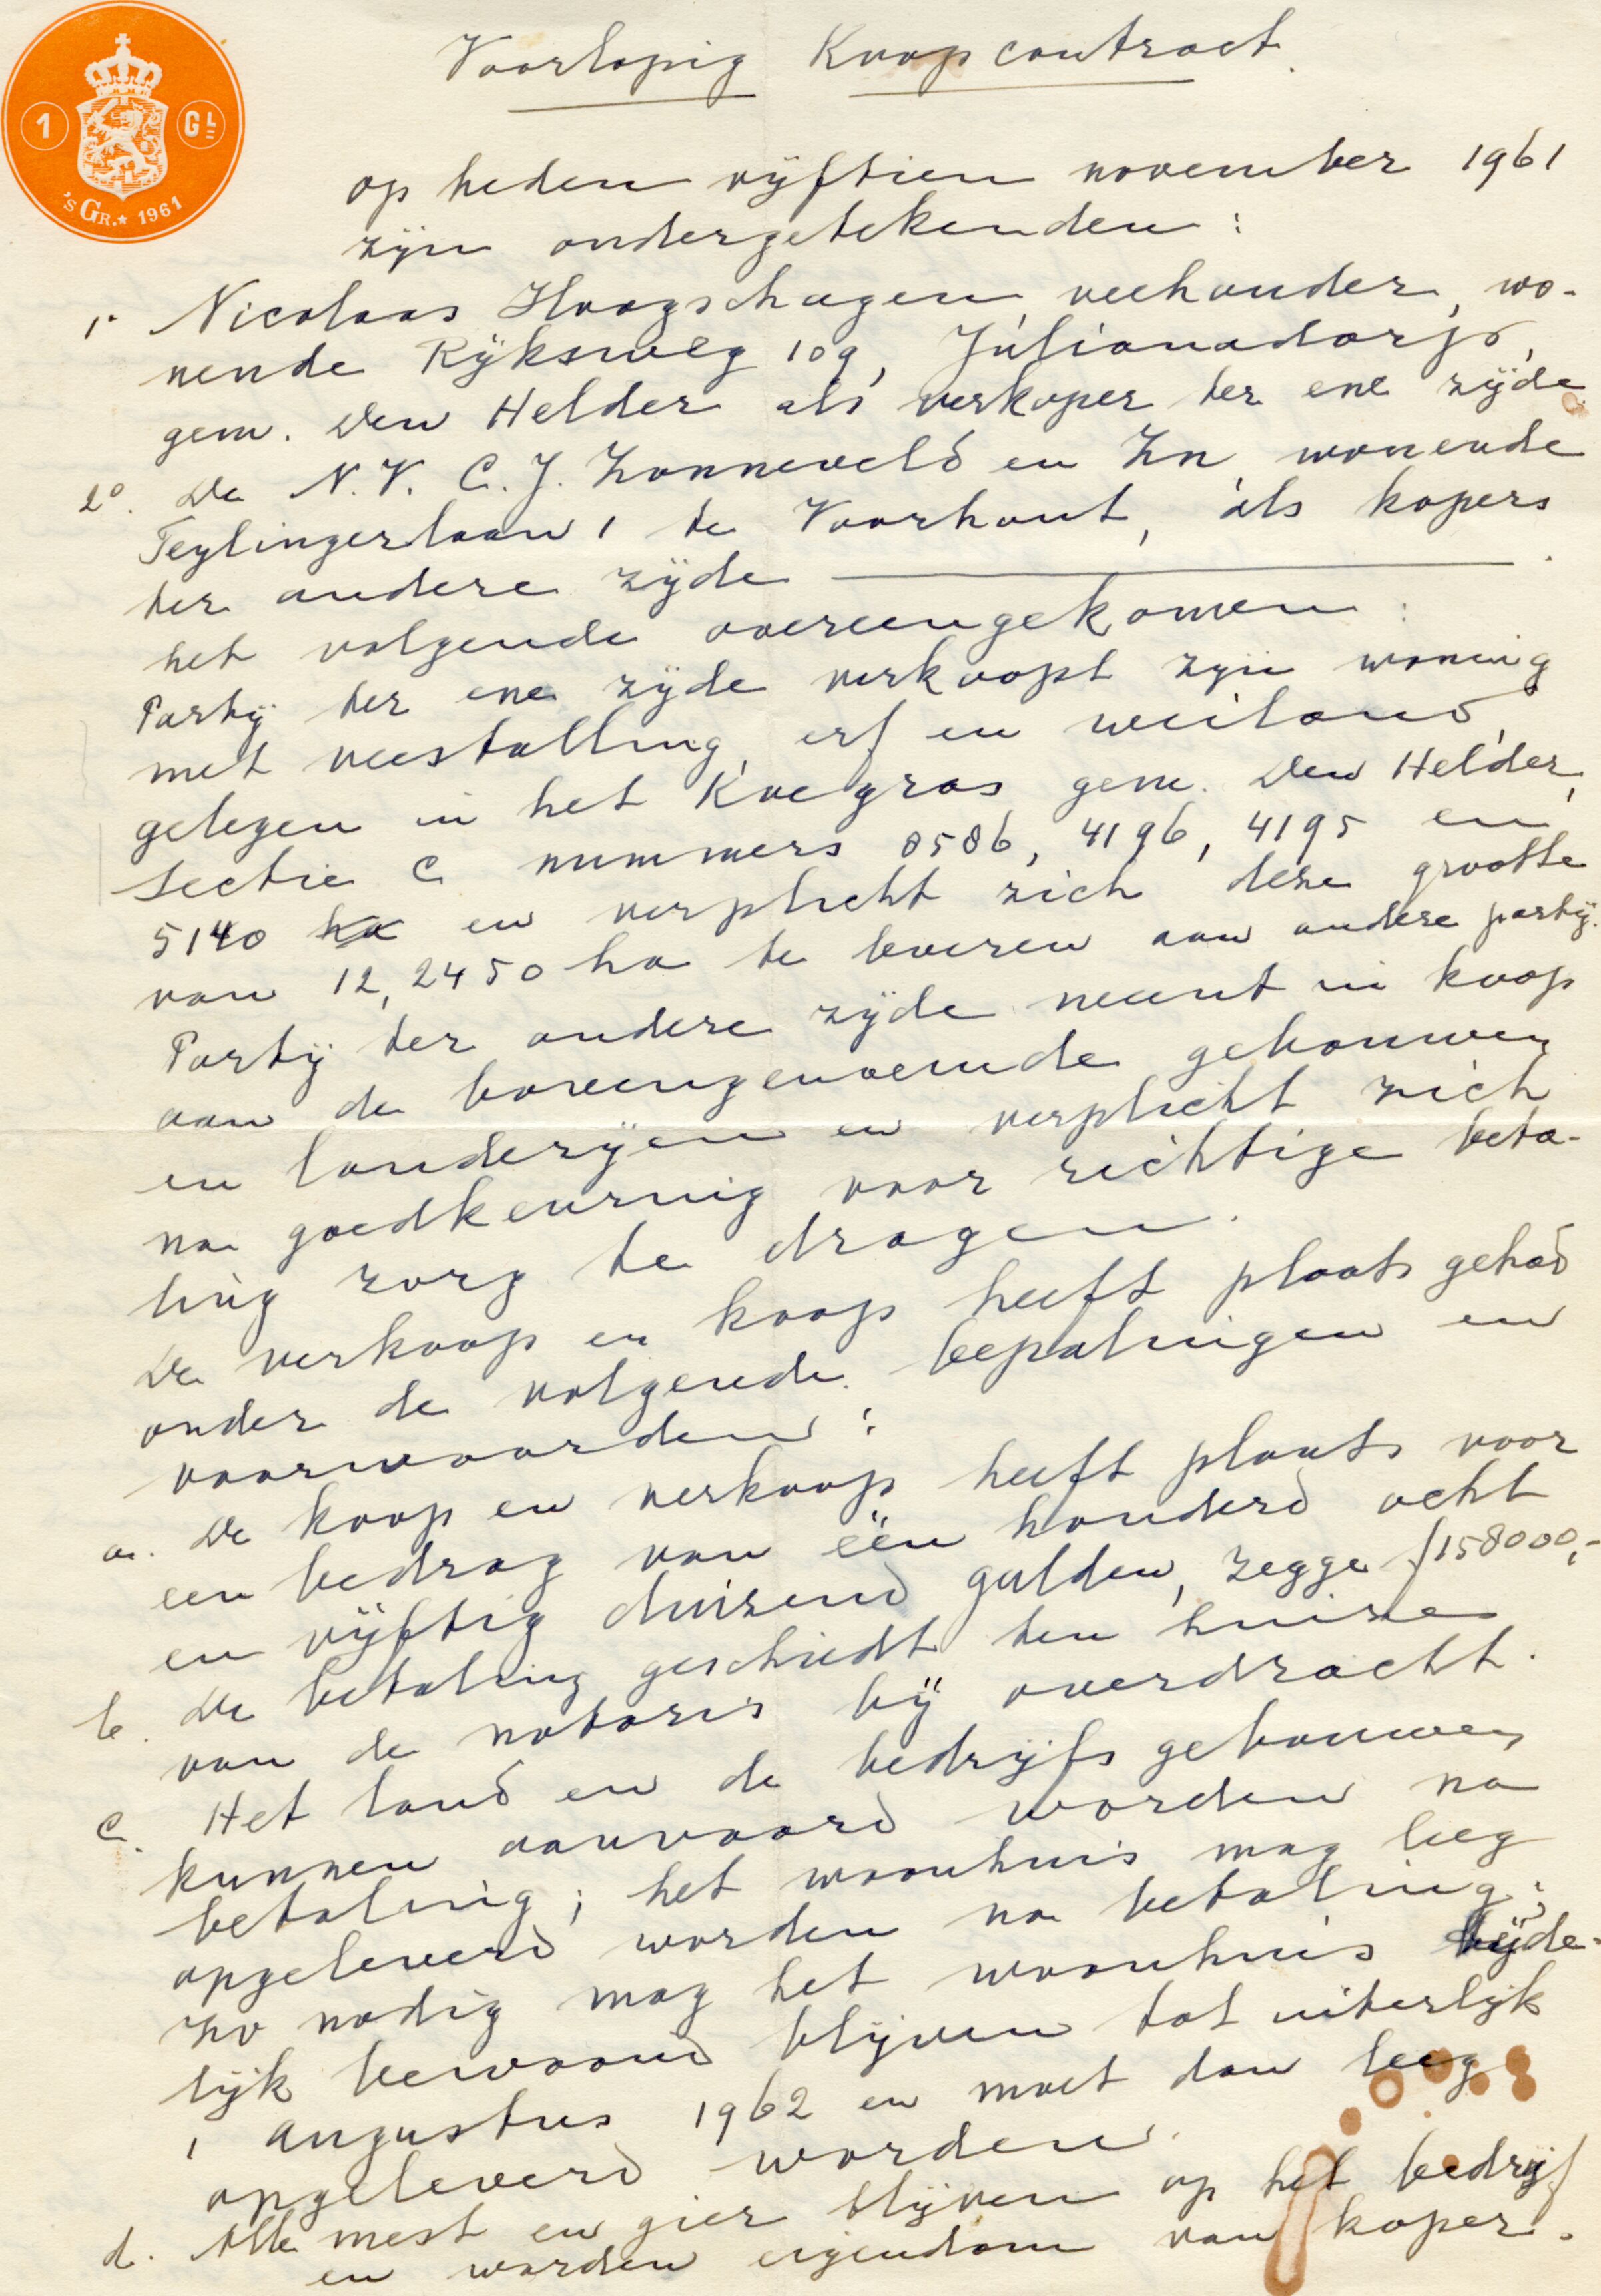 Voorlopig Koopcontract.
1 GL
's GR. ★ 1961
op heden vijftien november 1961
zijn ondergetekenden:
1° Nicolaas Hoogschagen, veehouder, wo-
nende Rijksweg 109, Julianadorp,
gem. Den Helder als verkoper ter ene zijde
2°. De N.V. C.J. Zonneveld en Zn wonende
Teylingerlaan 1 te Voorhout, als kopers
ter andere zijde
het volgende overeengekomen:
Partij ter ene zijde verkoopt zijn woning
met veestalling, erf en weiland,
gelegen in het Koegras gem. Den Helder,
sectie C nummers 8586, 4196, 4195 en
5140 ha en verplicht zich deze grootte
van 12,2450 ha te leveren aan andere partij.
Partij ter andere zijde neemt in koop
aan de bovengenoemde gebouwen
en landerijen en verplicht zich
na goedkeuring voor richtige beta-
ling zorg te dragen.
De verkoop en koop heeft plaats gehad
onder de volgende bepalingen en
voorwaarden:
a. De koop en verkoop heeft plaats voor
een bedrag van één honderd acht
en vijftig duizend gulden, zegge f 158000,-
b. De betaling geschiedt ten huize
van de notaris bij overdracht.
c. Het land en de bedrijfs gebouwen
kunnen aanvaard worden na
betaling; het woonhuis mag leeg
opgeleverd worden na betaling;
zo nodig mag het woonhuis tijde-
lijk bewoond blijven tot uiterlijk
1 augustus 1962 en moet dan leeg
opgeleverd worden.
d. Alle mest en gier blijven op het bedrijf
en worden eigendom van koper.